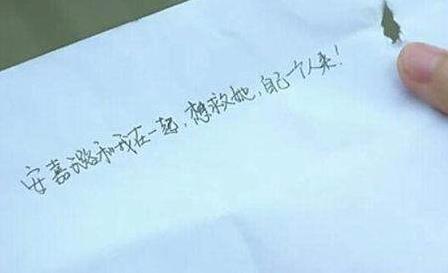 安嘉璐和我在一起,想救她,自己一个人来!